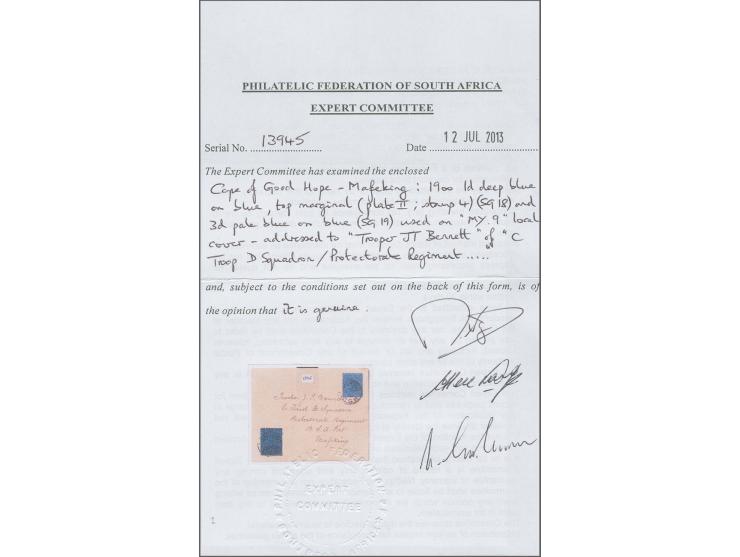 PHILATELIC FEDERATION OF SOUTH AFRICA
EXPERT COMMITTEE
Serial No. 13945 Date 12 JUL 2013
The Expert Committee has examined the enclosed
Cape of Good Hope - Mafeking : 1900 1d deep blue
on blue, top marginal (plate II ; stamp 4) (SG 18) and
3d pale blue on blue (SG 19) used on "MY. 9" local
cover - addressed to "Trooper JT Bennett" of "C
Troop D Squadron / Protectorate Regiment .....
and, subject to the conditions set out on the back of this form, is of
the opinion that it is genuine.
Protectorate Regiment
Mafeking
PHILATELIC FEDERATION OF
EXPERT
COMMITTEE